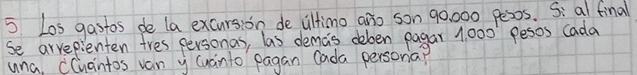 5 Los gastos de la excursión de último año son 90.000 pesos. Si al final
Se arrepienten tres personas, las demás deben pagar 1.000 pesos cada
una. ¿Cuántos van y cuánto pagan cada persona?